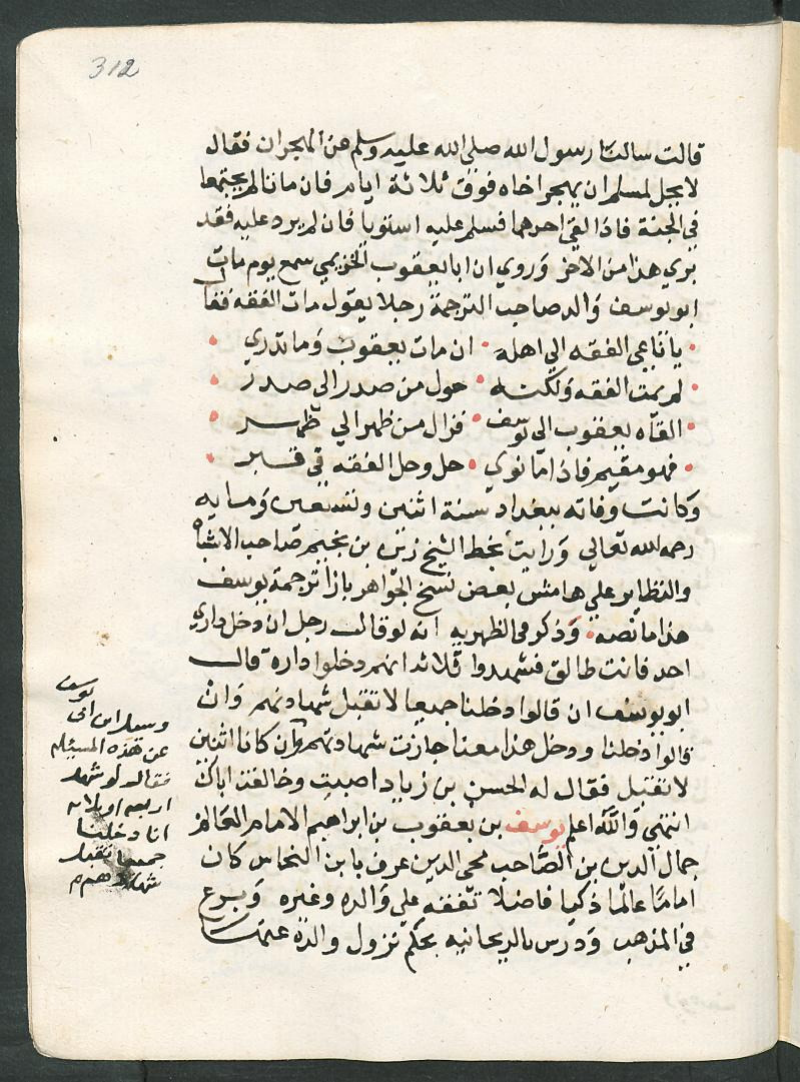 312
قالت سالت رسول الله صلي الله عليه وسلم عن الهجران فقال
لا يحل لمسلم ان يهجر اخاه فوق ثلاثة ايام فان ماتا لم يجتمعا
في الجنة فاذا لقي احدهما فسلم عليه استويا فان لم يرد عليه فقد
بري هذا من الاخر وروي ان ابا يعقوب الخزيمي سمع يوم مات
ابو يوسف والد صاحب الترجمة رجلا يقول مات الفقه فقال
يا ناعي الفقه الي اهله ان مات يعقوب وما تدري
لم يمت الفقه ولكنه حول من صدر الي صدر
القاه يعقوب الي يوسف فزال من ظهر الي ظهر
فهو مقيم فاذا ما نوي حل وحل الفقه في قبر
وكانت وفاته ببغداد سنة اثنين وتسعين ومايه
رحمه الله تعالي ورايت بخط الشيخ زين بن نجيم صاحب الاشباه
والنظاير علي هامش بعض نسخ الجواهر بازا ترجمة يوسف
هذا ما نصه وذكر في الظهريه انه لو قال رجل ان دخل داري
احد فانت طالق فشهدوا ثلاثة انهم دخلوا داره قال
ابو يوسف ان قالوا دخلنا جميعا لا تقبل شهادتهم وان
قالوا دخلنا ودخل هذا معنا جازت شهادتهم وان كانا اثنين
لا تقبل فقال له الحسن بن زياد اصبت وخالفت اباك
انتهي والله اعلم يوسف بن يعقوب بن ابراهيم الامام العالم
جمال الدين بن الصاحب محي الدين عرف بابن النحاس كان
اماما عالما ذكيا فاضلا تفقه علي والده وغيره وبرع
في المذهب ودرس بالريحانيه بحكم نزول والده عنها
يوسف
وسيل ابن ابي
عن هذه المسيله
فقال لو شهد
اربعه او ثلاثه
انا دخلنا
جميعا تقبل
شهادتهم